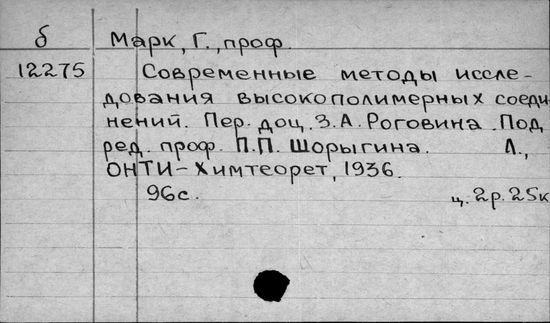 б Марк, Г., проф.
12275 Современные методы иссле-
дования высокополимерных соеди
нений. Пер. доц. З.А. Роговина. Под
ред. проф. П.П. Шорыгина. Л.,
ОНТИ-Химтеорет, 1936.
96с. ц. 2р. 25к